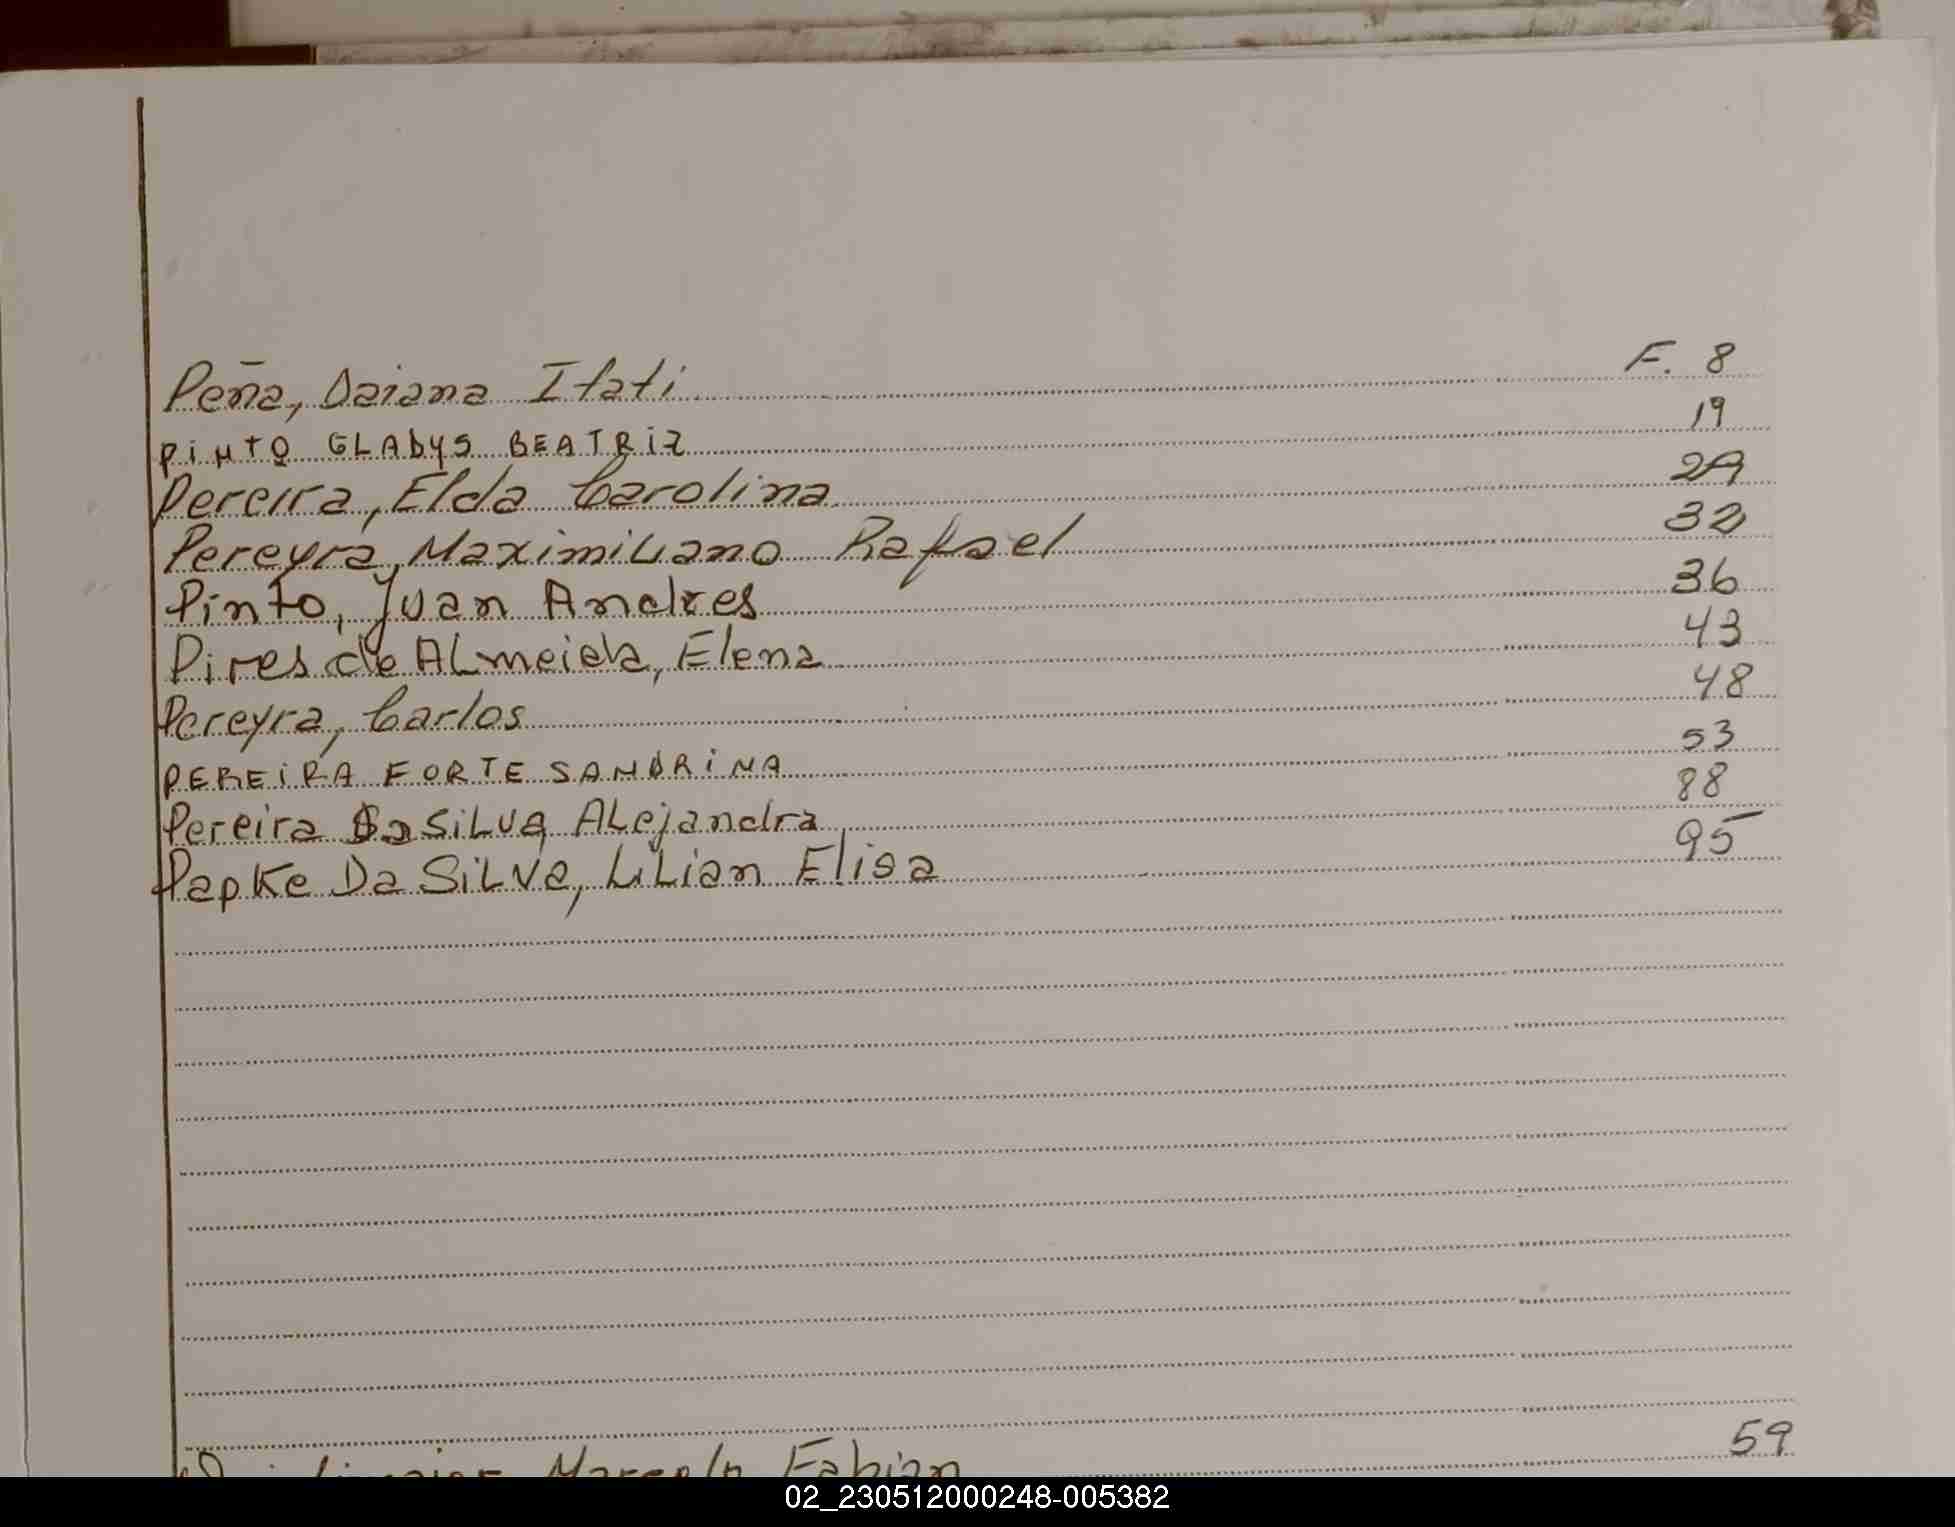 Peña, Daiana Itati F. 8
PINTO GLADYS BEATRIZ 19
Pereira, Elda Carolina 29
Pereyra, Maximiliano Rafael 32
Pinto, Juan Andres 36
Pires de Almeida, Elena 43
Pereyra, Carlos 48
PEREIRA FORTE SANDRINA 53
Pereira Da Silva Alejandra 88
Papke Da Silva, Lilian Elisa 95
Marcelo Fabian 59
02_230512000248-005382